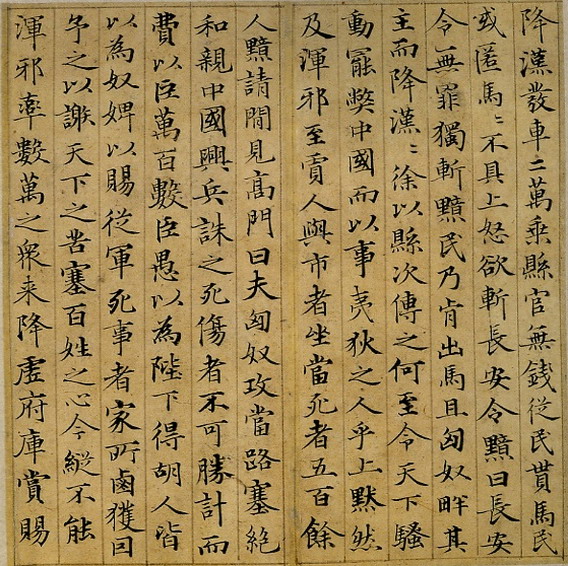 降漢發車二萬乘縣官無錢從民貰馬民
或匿馬〻不具上怒欲斬長安令黯曰長安
令無罪獨斬黯民乃肯出馬且匈奴畔其
主而降漢〻徐以縣次傳之何至令天下騷
動罷弊中國而以事夷狄之人乎上默然
及渾邪至賈人與市者坐當死者五百餘
人黯請間見高門曰夫匈奴攻當路塞絕
和親中國興兵誅之死傷者不可勝計而
費以巨萬百數臣愚以為陛下得胡人皆
以為奴婢以賜從軍死事者家所鹵獲因
予之以謝天下之苦塞百姓之心今縱不能
渾邪率數萬之衆来降虛府庫賞賜